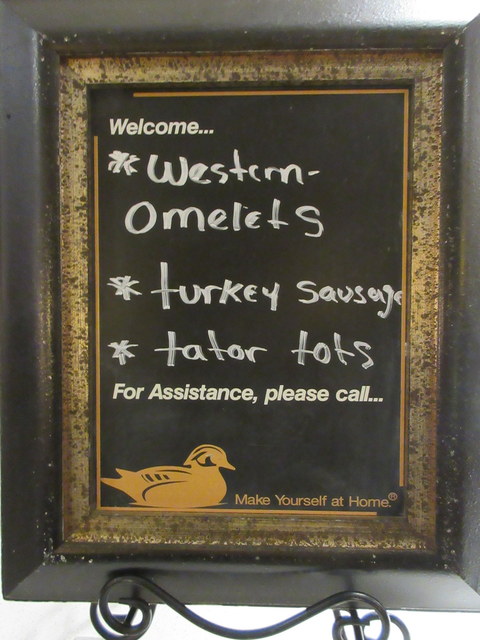 Welcome...
* Western-
Omelets
* turkey sausage
* tator tots
For Assistance, please call...
Make Yourself at Home.®